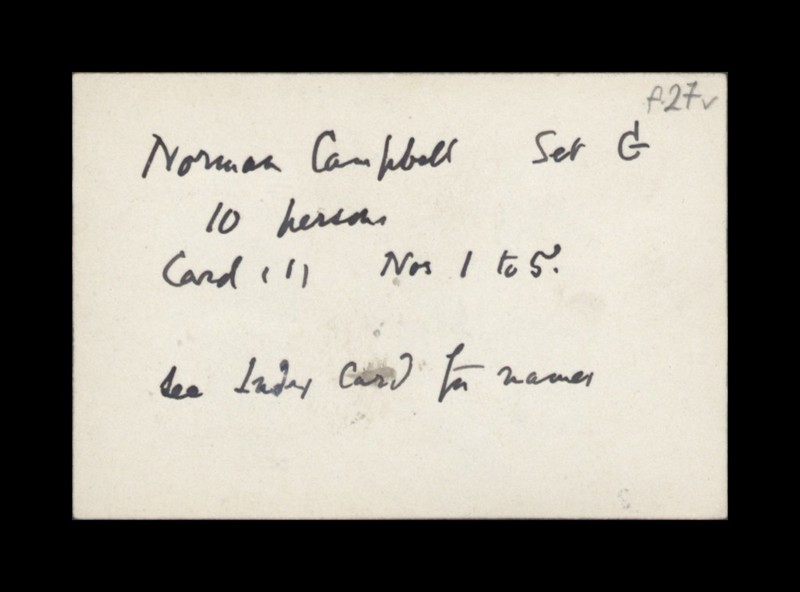 f.27v
Norman Campbell Set G
10 persons
Card (1) Nos 1 to 5.
See Index Card for names